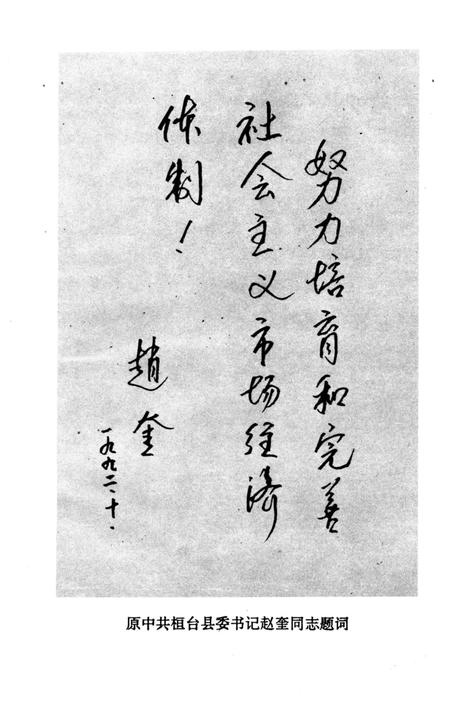 努力培育和完善
社会主义市场经济
体制！
趙奎
一九九二、十、
原中共桓台县委书记赵奎同志题词